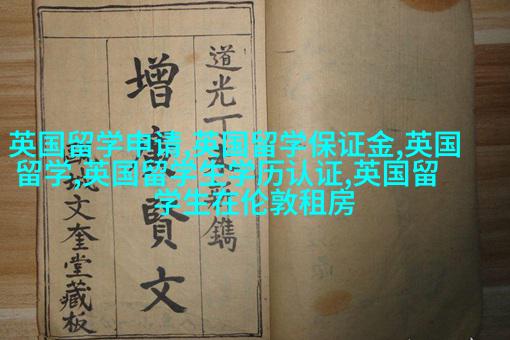 英国留学申请,英国留学保证金,英国
留学,英国留学生学历认证,英国留
学生在伦敦租房
道光丁
鐫
增廣賢文
文奎堂藏板